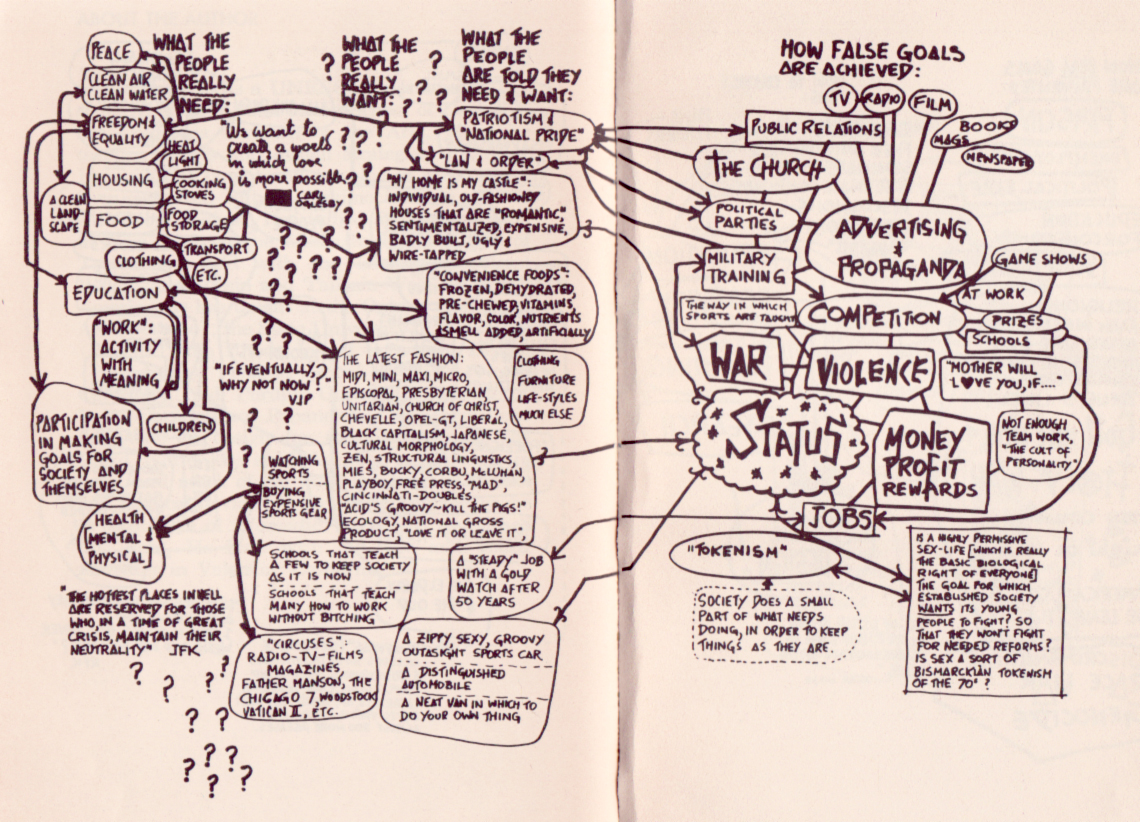 WHAT THE
PEOPLE
REALLY
NEED:
PEACE
CLEAN AIR
CLEAN WATER
FREEDOM &
EQUALITY
HOUSING
FOOD
HEAT
LIGHT
COOKING
STOVES
FOOD
STORAGE
TRANSPORT
ETC.
A CLEAN
LAND-
SCAPE
CLOTHING
EDUCATION
"WORK":
ACTIVITY
WITH
MEANING
CHILDREN
PARTICIPATION
IN MAKING
GOALS FOR
SOCIETY AND
THEMSELVES
HEALTH
[MENTAL &
PHYSICAL]
"THE HOTTEST PLACES IN HELL
ARE RESERVED FOR THOSE
WHO, IN A TIME OF GREAT
CRISIS, MAINTAIN THEIR
NEUTRALITY" JFK
WHAT THE
PEOPLE
REALLY
WANT:
? ? ? ? ? ? ? ? ? ?
"We want to
create a world
in which love
is more possible"
CARL
OGLESBY
"IF EVENTUALLY,
WHY NOT NOW?"
VJP
WHAT THE
PEOPLE
ARE TOLD THEY
NEED & WANT:
PATRIOTISM &
"NATIONAL PRIDE"
"LAW & ORDER"
"MY HOME IS MY CASTLE":
INDIVIDUAL, OLD-FASHIONED
HOUSES THAT ARE "ROMANTIC",
SENTIMENTALIZED, EXPENSIVE,
BADLY BUILT, UGLY &
WIRE-TAPPED
"CONVENIENCE FOODS":
FROZEN, DEHYDRATED,
PRE-CHEWED, VITAMINS,
FLAVOR, COLOR, NUTRIENTS
& SMELL ADDED, ARTIFICIALLY
THE LATEST FASHION:
MIDI, MINI, MAXI, MICRO,
EPISCOPAL, PRESBYTERIAN,
UNITARIAN, CHURCH OF CHRIST,
CHEVELLE, OPEL-GT, LIBERAL,
BLACK CAPITALISM, JAPANESE,
CULTURAL MORPHOLOGY,
ZEN, STRUCTURAL LINGUISTICS,
MIES, BUCKY, CORBU, McLUHAN,
PLAYBOY, FREE PRESS, "MAD",
CINCINNATI-DOUBLES,
"ACID'S GROOVY~KILL THE PIGS!"
ECOLOGY, NATIONAL GROSS
PRODUCT, "LOVE IT OR LEAVE IT",
CLOTHING
FURNITURE
LIFE-STYLES
MUCH ELSE
WATCHING
SPORTS
BUYING
EXPENSIVE
SPORTS GEAR
SCHOOLS THAT TEACH
A FEW TO KEEP SOCIETY
AS IT IS NOW
SCHOOLS THAT TEACH
MANY HOW TO WORK
WITHOUT BITCHING
A "STEADY" JOB
WITH A GOLD
WATCH AFTER
50 YEARS
"CIRCUSES":
RADIO-TV-FILMS
MAGAZINES,
FATHER MANSON, THE
CHICAGO 7, WOODSTOCK
VATICAN II, ETC.
A ZIPPY, SEXY, GROOVY
OUTASIGHT SPORTS CAR
A DISTINGUISHED
AUTOMOBILE
A NEAT VAN IN WHICH TO
DO YOUR OWN THING
HOW FALSE GOALS
ARE ACHIEVED:
TV
RADIO
FILM
BOOKS
MAGS
NEWSPAPER
PUBLIC RELATIONS
THE CHURCH
POLITICAL
PARTIES
ADVERTISING
&
PROPAGANDA
MILITARY
TRAINING
GAME SHOWS
AT WORK
PRIZES
SCHOOLS
THE WAY IN WHICH
SPORTS ARE TAUGHT
COMPETITION
WAR
VIOLENCE
"MOTHER WILL
L♥VE YOU, IF...."
STATUS
MONEY
PROFIT
REWARDS
NOT ENOUGH
TEAM WORK,
"THE CULT OF
PERSONALITY"
JOBS
"TOKENISM"
SOCIETY DOES A SMALL
PART OF WHAT NEEDS
DOING, IN ORDER TO KEEP
THINGS AS THEY ARE.
IS A HIGHLY PERMISSIVE
SEX-LIFE [WHICH IS REALLY
THE BASIC BIOLOGICAL
RIGHT OF EVERYONE]
THE GOAL FOR WHICH
ESTABLISHED SOCIETY
WANTS ITS YOUNG
PEOPLE TO FIGHT? SO
THAT THEY WON'T FIGHT
FOR NEEDED REFORMS?
IS SEX A SORT OF
BISMARCKIAN TOKENISM
OF THE 70'?